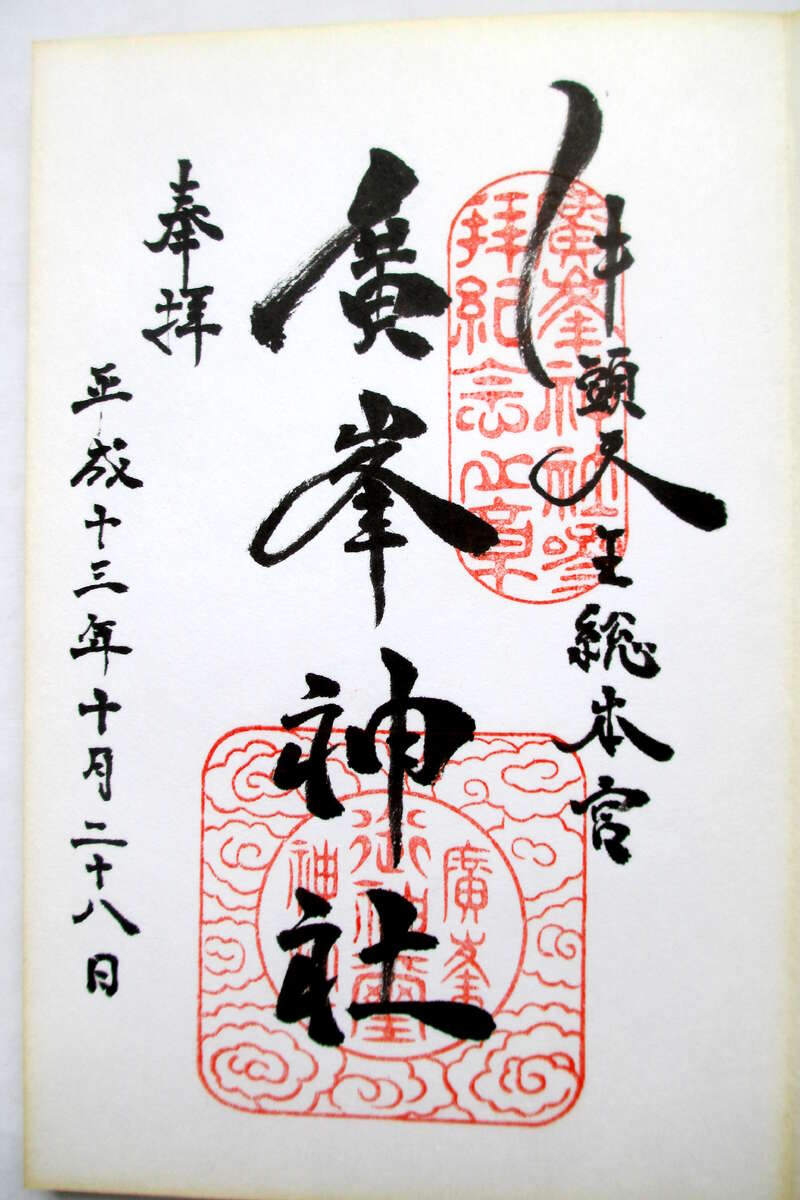 牛頭天王総本宮
廣峯神社参
拝紀念之章
廣峯神社
廣峯
御神璽
神社
奉拝
平成十三年十月二十八日